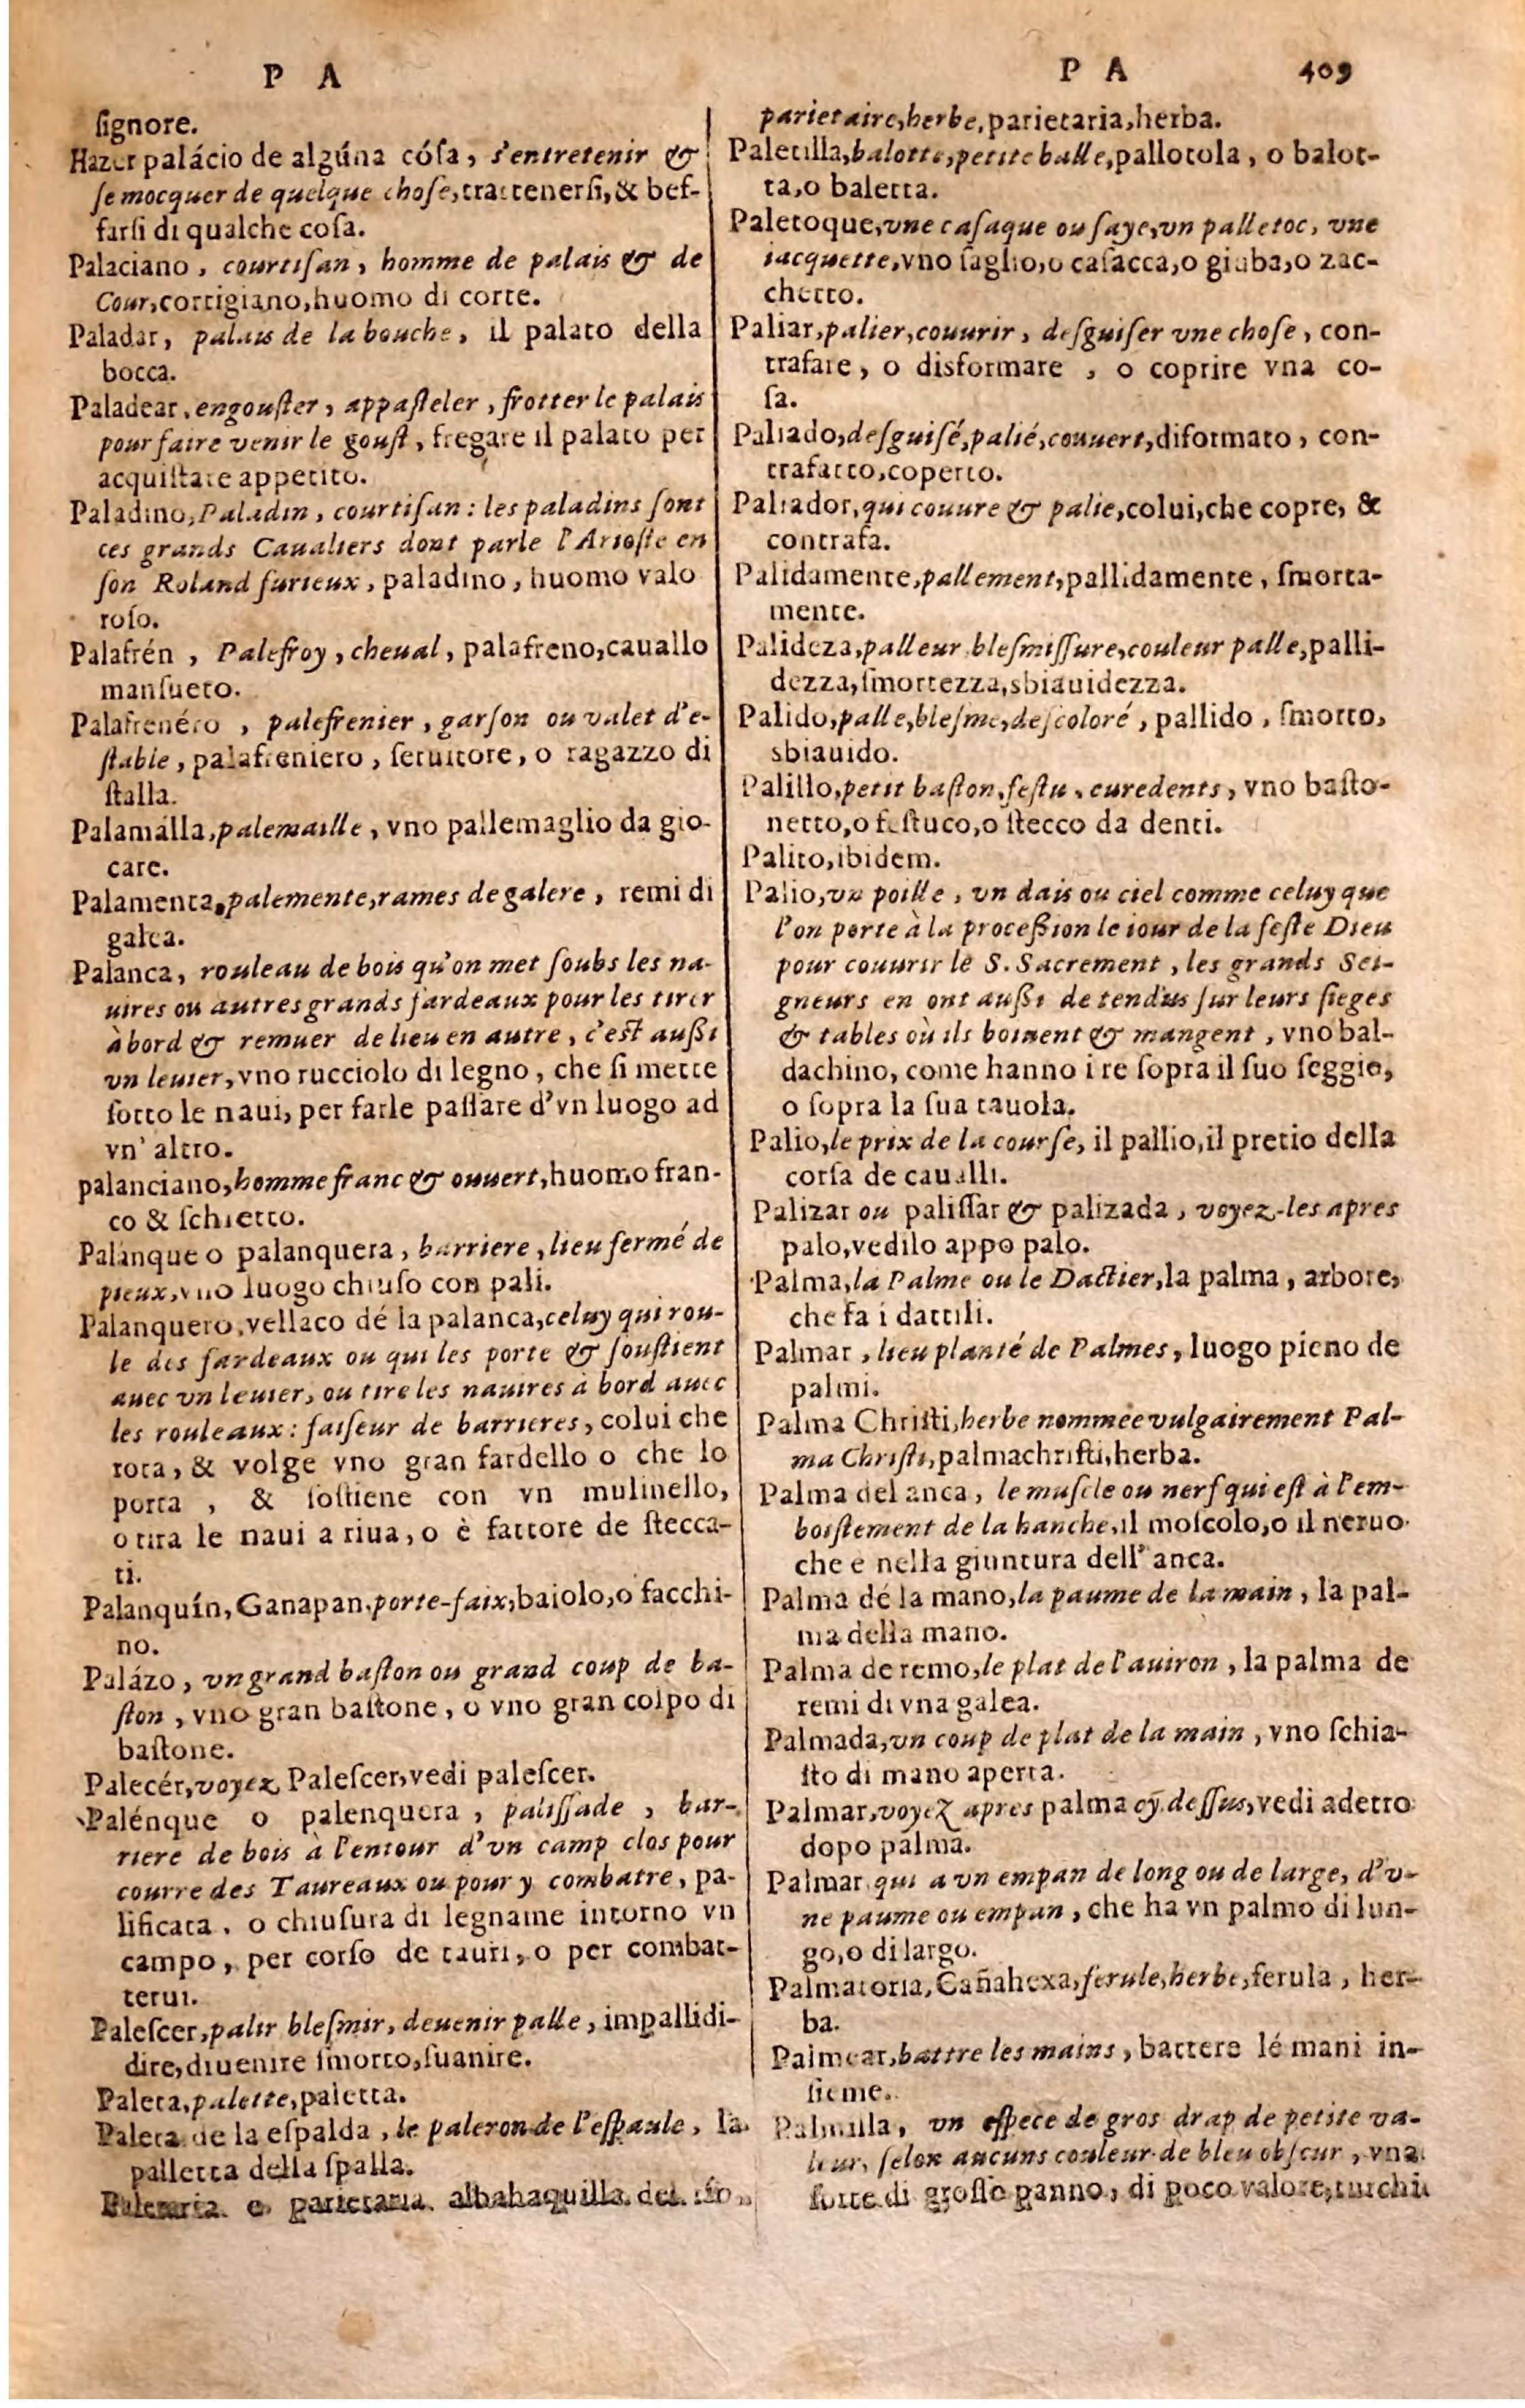 P A
ſignore.
Hazer palácio de algúna cóſa, s'entretenir &
ſe mocquer de quelque choſe, trattenerſi, & bef-
farſi di qualche coſa.
Palaciano, courtiſan, homme de palais & de
Cour, cortigiano, huomo di corte.
Paladar, palais de la bouche, il palato della
bocca.
Paladear, engouſter, appaſteler, frotter le palais
pour faire venir le gouſt, fregare il palato per
acquiſtare appetito.
Paladino, Paladin, courtiſan: les paladins ſont
ces grands Caualiers dont parle l'Arioſte en
ſon Roland furieux, paladino, huomo valo
roſo.
Palafrén, Palefroy, cheual, palafreno, cauallo
manſueto.
Palafrenéro, palefrenier, garſon ou valet d'e-
ſtable, palafreniero, ſeruitore, o ragazzo di
ſtalla.
Palamálla, palemaille, vno pallemaglio da gio-
care.
Palamenta, palemente, rames de galere, remi di
galea.
Palanca, rouleau de bois qu'on met ſoubs les na-
uires ou autres grands fardeaux pour les tirer
à bord & remuer de lieu en autre, c'eſt außi
vn leuier, vno rucciolo di legno, che ſi mette
ſotto le naui, per farle paſſare d'vn luogo ad
vn' altro.
palanciano, homme franc & ouuert, huomo fran-
co & ſchietto.
Palánque o palanquera, barriere, lieu fermé de
pieux, vno luogo chiuſo con pali.
Palanquero, vellaco dé la palanca, celuy qui rou-
le des fardeaux ou qui les porte & ſouſtient
auec vn leuier, ou tire les nauires à bord auec
les rouleaux: faiſeur de barrieres, colui che
rota, & volge vno gran fardello o che lo
porta, & ſoſtiene con vn mulinello,
o tira le naui a riua, o è fattore de ſtecca-
ti.
Palanquín, Ganapan, porte-faix, baiolo, o facchi-
no.
Palázo, vn grand baſton ou grand coup de ba-
ſton, vno gran baſtone, o vno gran colpo di
baſtone.
Palecér, voyez Paleſcer, vedi paleſcer.
Palénque o palenquera, paliſſade, bar-
riere de bois à l'entour d'vn camp clos pour
courre des Taureaux ou pour y combatre, pa-
lificata, o chiuſura di legname intorno vn
campo, per corſo de tauri, o per combat-
terui.
Paleſcer, palir bleſmir, deuenir palle, impallidi-
dire, diuenire ſmorto, ſuanire.
Paleta, palette, paletta.
Paleta de la eſpalda, le paleron de l'eſpaule, la
palletta della ſpalla.
Paletaria o parietaria, albahaquilla del río,
P A 409
parietaire, herbe, parietaria, herba.
Paletilla, balotte, petite balle, pallotola, o balot-
ta, o baletta.
Paletoque, vne caſaque ou ſaye, vn palletoc, vne
iacquette, vno ſaglio, o caſacca, o giuba, o zac-
chetto.
Paliar, palier, couurir, deſguiſer vne choſe, con-
trafare, o disformare, o coprire vna co-
ſa.
Paliado, deſguiſé, palié, couuert, diformato, con-
trafatto, coperto.
Paliador, qui couure & palie, colui, che copre, &
contrafa.
Palidamente, pallement, pallidamente, ſmorta-
mente.
Palideza, palleur bleſmiſſure, couleur palle, palli-
dezza, ſmortezza, sbiauidezza.
Palido, palle, bleſme, deſcoloré, pallido, ſmorto,
sbiauido.
Palillo, petit baſton, feſtu, curedents, vno baſto-
netto, o feſtuco, o ſtecco da denti.
Palito, ibidem.
Palio, vn poille, vn dais ou ciel comme celuy que
l'on porte à la proceßion le iour de la feſte Dieu
pour couurir le S. Sacrement, les grands Sei-
gneurs en ont außi de tendus ſur leurs ſieges
& tables où ils boiuent & mangent, vno bal-
dachino, come hanno i re ſopra il ſuo ſeggio,
o ſopra la ſua tauola.
Palio, le prix de la courſe, il pallio, il pretio della
corſa de caualli.
Palizar ou paliſſar & palizada, voyez-les apres
palo, vedilo appo palo.
Palma, la Palme ou le Dactier, la palma, arbore,
che fa i dattili.
Palmar, lieu planté de Palmes, luogo pieno de
palmi.
Palma Chriſti, herbe nommee vulgairement Pal-
ma Chriſti, palmachriſti, herba.
Palma del anca, le muſcle ou nerf qui eſt à l'em-
boiſtement de la hanche, il moſcolo, o il neruo
che e nella giuntura dell' anca.
Palma dé la mano, la paume de la main, la pal-
ma della mano.
Palma de remo, le plat de l'auiron, la palma de
remi di vna galea.
Palmada, vn coup de plat de la main, vno ſchia-
ffo di mano aperta.
Palmar, voyez apres palma cy deſſus, vedi adetto
dopo palma.
Palmar qui a vn empan de long ou de large, d'v-
ne paume ou empan, che ha vn palmo di lun-
go, o di largo.
Palmatoria, Cañahexa, ferule, herbe, ferula, her-
ba.
Palmear, battre les mains, battere lé mani in-
ſieme.
Palmilla, vn eſpece de gros drap de petite va-
leur, ſelon aucuns couleur de bleu obſcur, vna
ſorte di groſſo panno, di poco valore, turchi